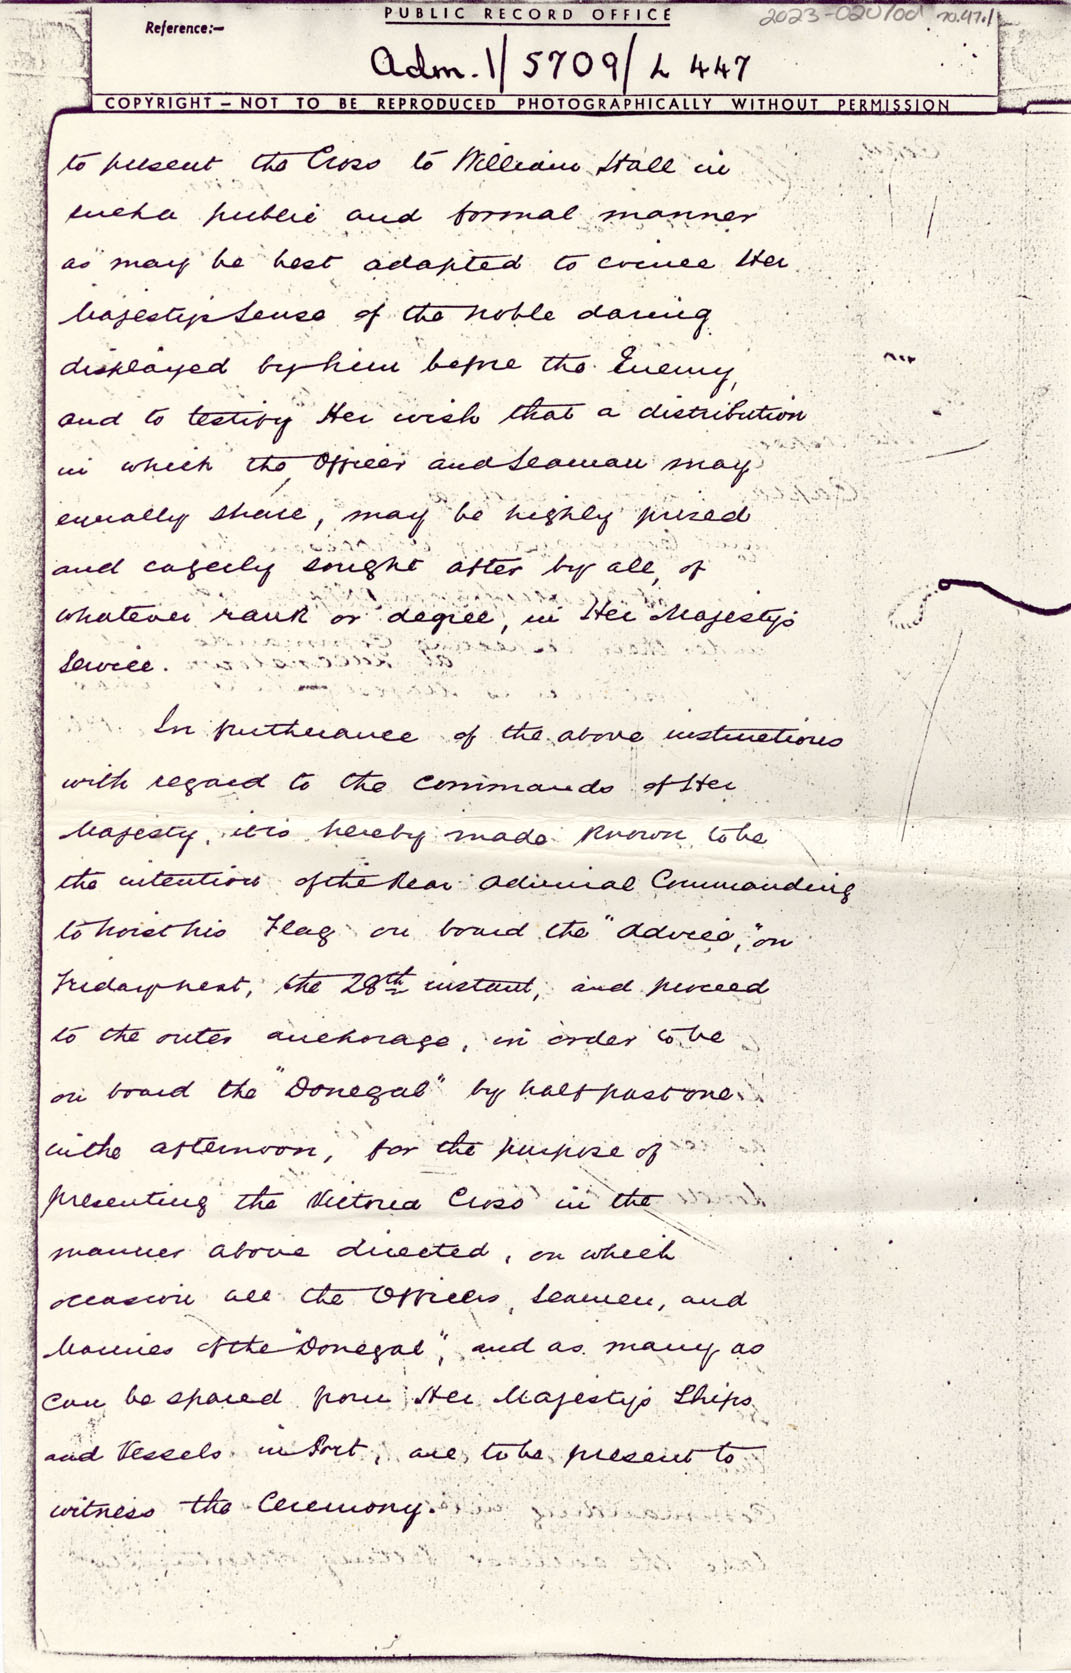 PUBLIC RECORD OFFICE
2023-020/00
Reference:-
Adm. 1/5709/L 447
COPYRIGHT – NOT TO BE REPRODUCED PHOTOGRAPHICALLY WITHOUT PERMISSION
to present the Cross to William Hall in
such a public and formal manner
as may be best adapted to evince Her
Majesty's sense of the noble daring
displayed by him before the Enemy,
and to testify Her wish that a distribution
in which the Officer and Seaman may
equally share, may be highly prized
and eagerly sought after by all, of
whatever rank or degree, in Her Majesty's
Service.
In furtherance of the above instructions
with regard to the commands of Her
Majesty, it is hereby made known to be
the intention of the Rear Admiral Commanding
to hoist his Flag on board the "Advice," on
Friday next, the 28th instant, and proceed
to the outer anchorage, in order to be
on board the "Donegal" by half past one
in the afternoon, for the purpose of
presenting the Victoria Cross in the
manner above directed, on which
occasion all the Officers, Seamen, and
Marines of the "Donegal", and as many as
can be spared from Her Majesty's Ships
and Vessels in Port, are to be present to
witness the Ceremony.